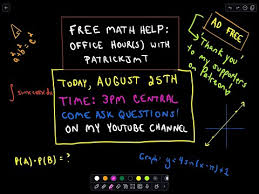 FREE MATH HELP:
OFFICE HOUR(S) WITH
PATRICKJMT
AD FREE
"Thank you"
to my
supporters
on
Patreon
a²+b²=c²
TODAY, AUGUST 25TH
TIME: 3PM CENTRAL
COME ASK QUESTIONS!
ON MY YOUTUBE CHANNEL
∫sinxcosxdx
P(A)·P(B) = ?
Graph: y=4sin(x-π)+2